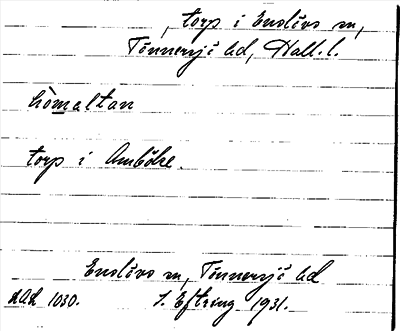 , torp i Enslövs sn,
Tönnersjö hd, Hall. l.
hòmaltan
torp i Amböke.
Enslövs sn, Tönnersjö hd
1030. S. Eftring 1931.